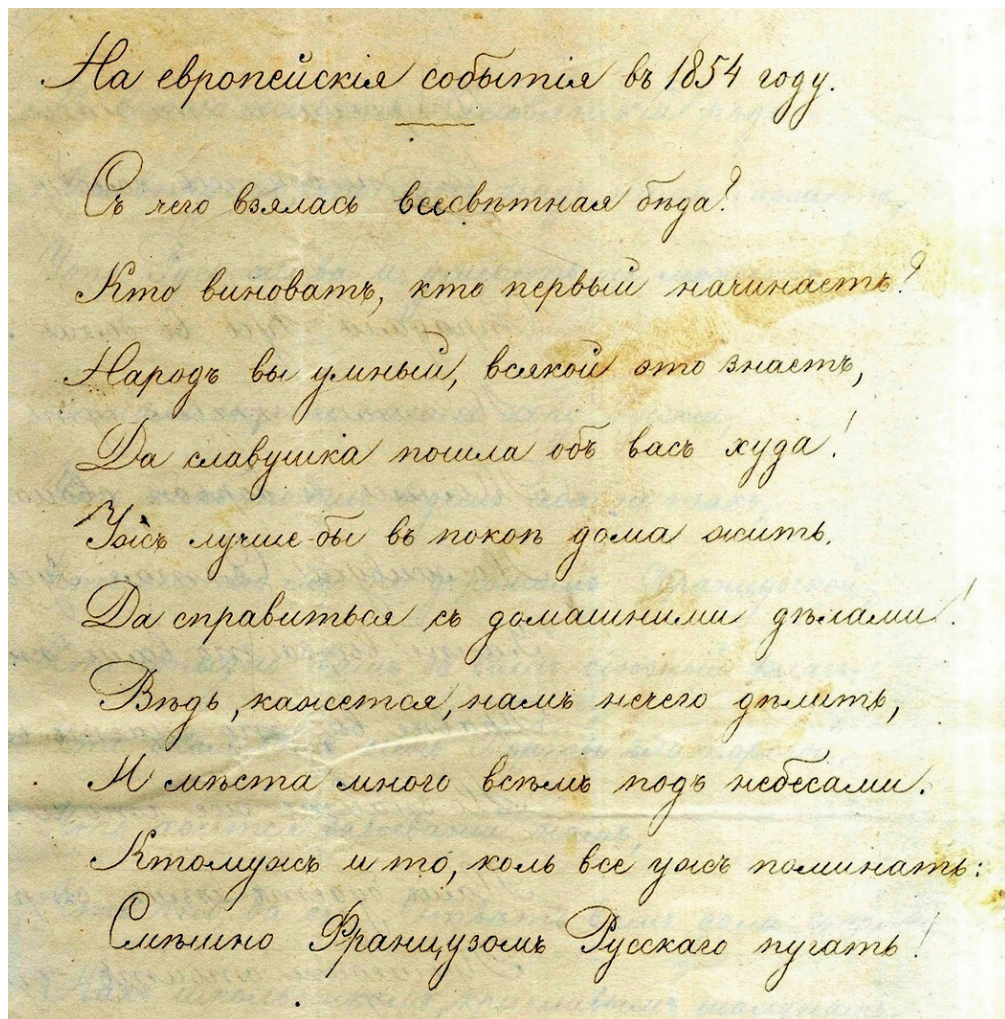 На европейскія событія въ 1854 году.
Съ чего взялась всесвѣтная бѣда?
Кто виноватъ, кто первый начинаетъ?
Народъ вы умный, всякой это знаетъ,
Да славушка пошла объ васъ худа!
Ужъ лучше-бы въ покоѣ дома жить,
Да справиться съ домашними дѣлами!
Вѣдь, кажется, намъ нечего дѣлить,
И мѣста много всѣмъ подъ небесами.
Ктомужъ и то, коль все ужъ поминать:
Смѣшно Французомъ Русскаго пугать!